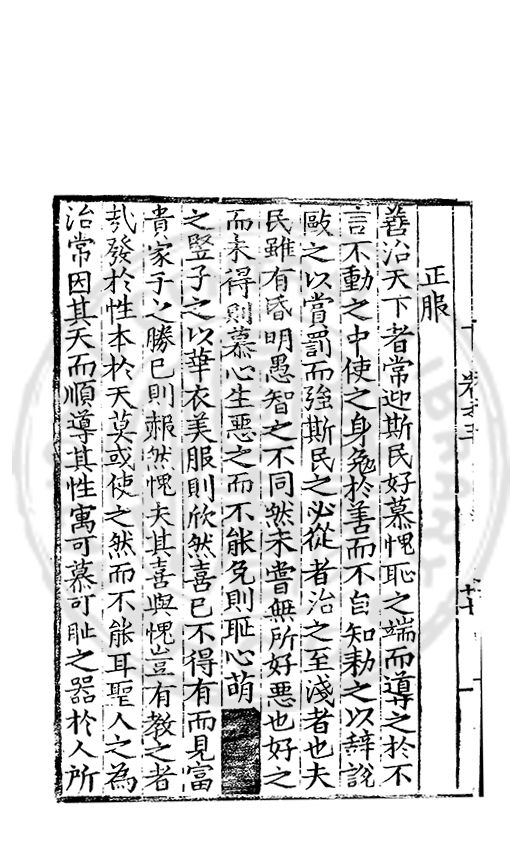 正服
善治天下者常迎斯民好慕愧恥之端而導之於不
言不動之中使之身勉於善而不自知勑之以辭説
敺之以賞罰而強斯民之必從者治之至淺者也夫
民雖有昏明愚智之不同然未嘗無所好惡也好之
而未得則慕心生惡之而不能免則耻心萌
之豎子之以華衣美服則欣然喜已不得有而見富
貴家子之勝已則赧然愧夫其喜與愧豈有教之者
哉發於性本於天莫或使之然而不能耳聖人之為
治常因其天而順導其性寓可慕可耻之器於人所